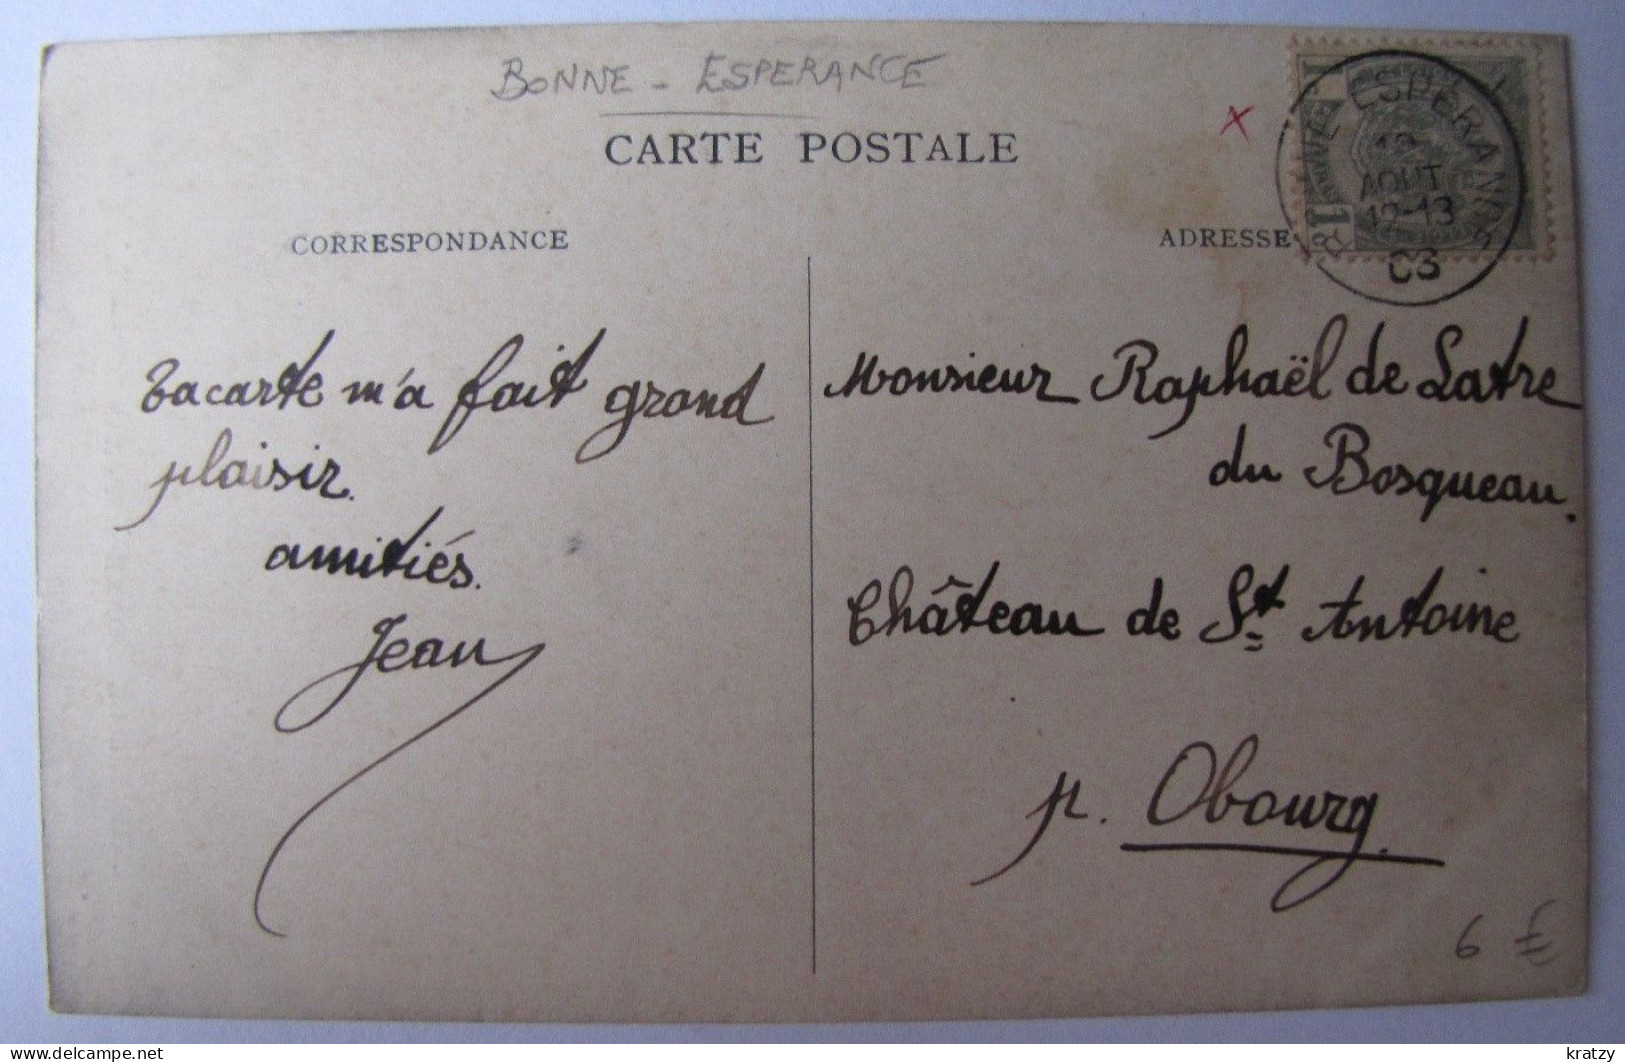 BONNE - ESPERANCE
CARTE POSTALE
ESPERANCE
AOUT
12-13
CORRESPONDANCE
ADRESSE
Tacarte m'a fait grand
plaisir.
amitiés.
Jean
Monsieur Raphaël de Latre
du Bosqueau.
Château de St Antoine
p. Obourg.
6 €
kratzy